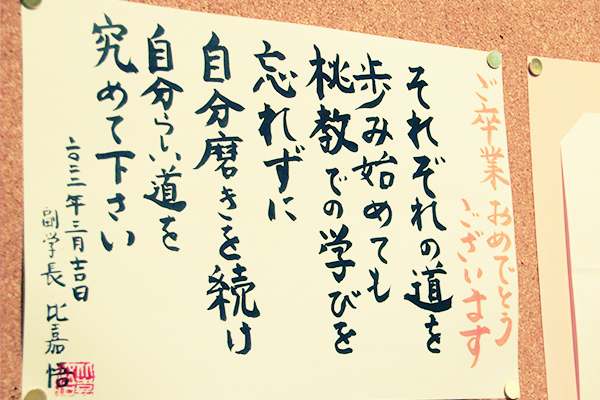 ご卒業おめでとう
ございます
それぞれの道を
歩み始めても
桃教での学びを
忘れずに
自分磨きを続け
自分らしい道を
究めて下さい
二〇二二年三月吉日
副学長 比嘉 悟